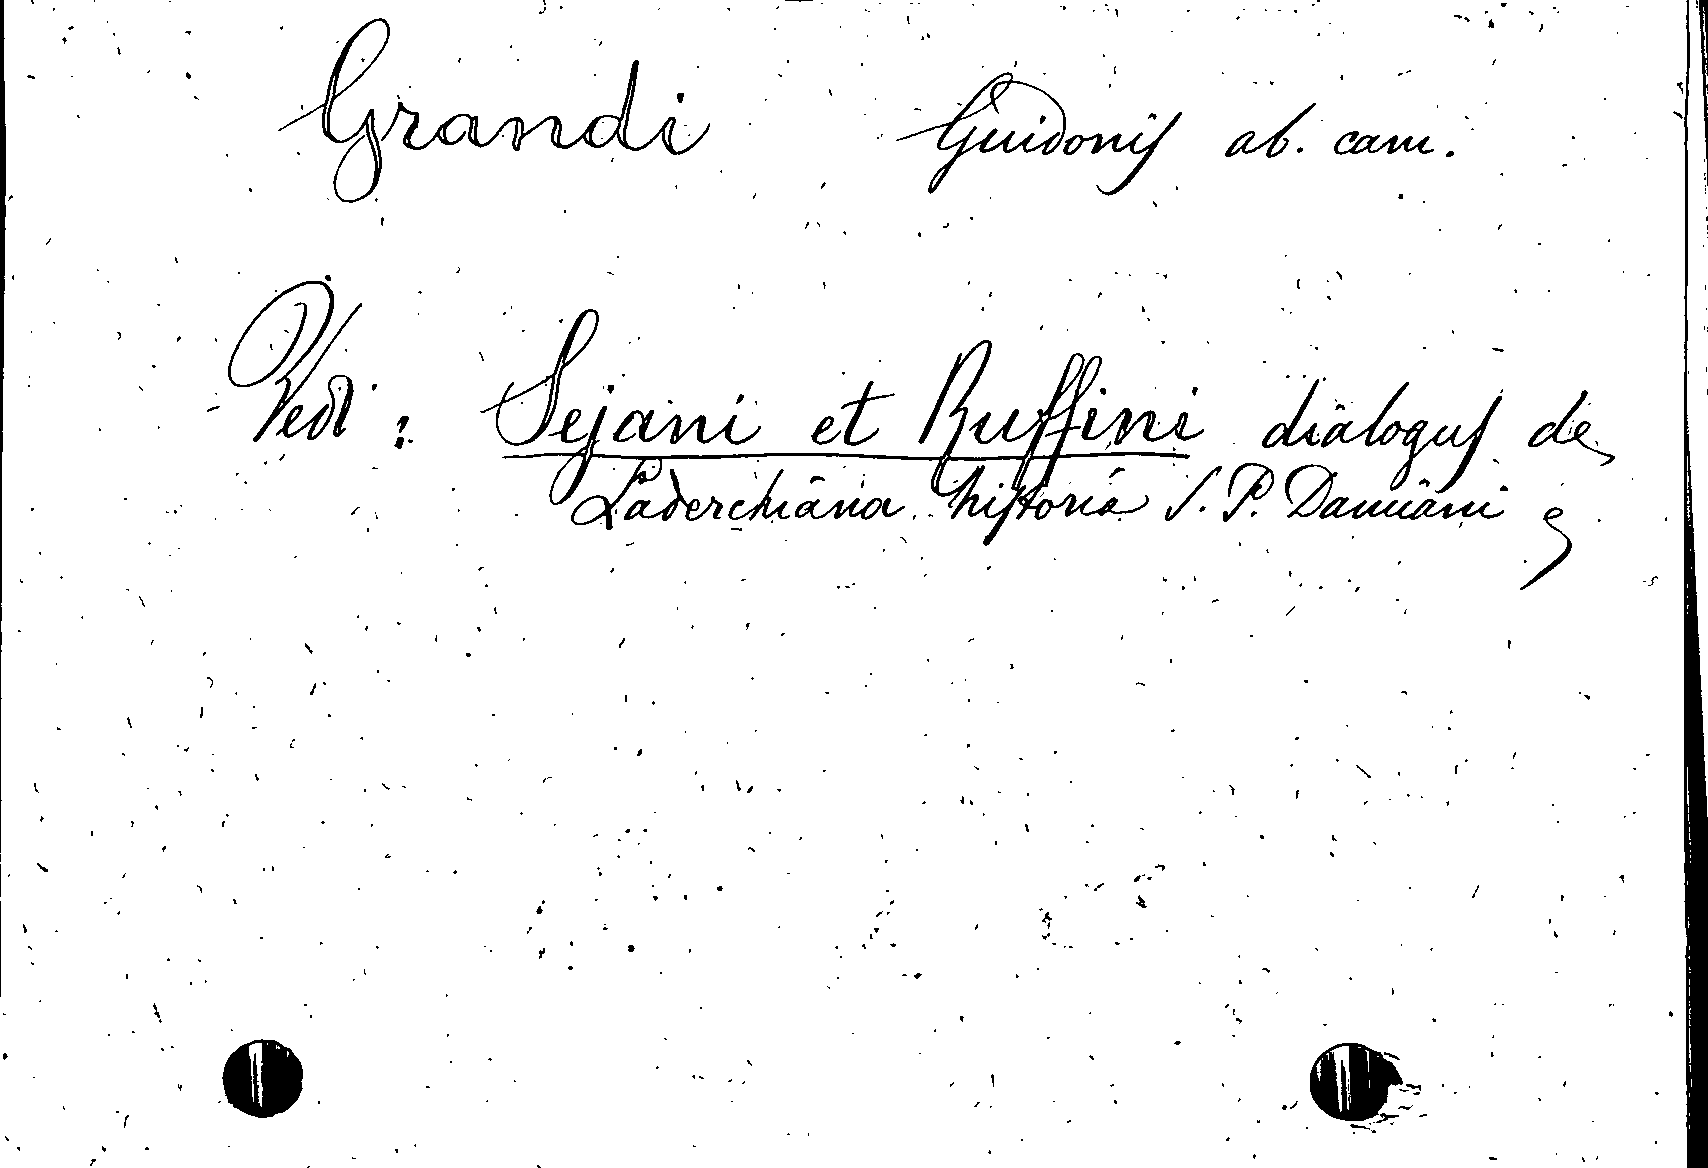 Grandi Guidonis ab. cam.
Vedi: Sejani et Ruffini dialogus de
Laderchiana historia S. P. Damiani